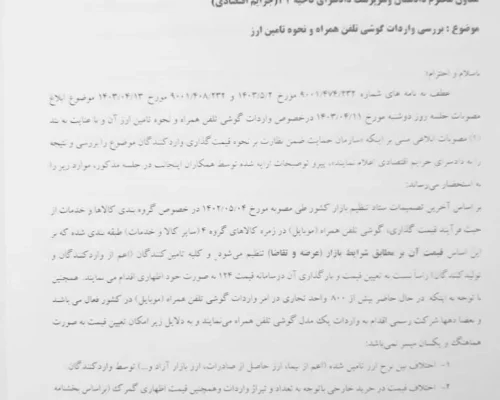 معاون محترم دادستان و سرپرست دادسرای ناحیه ۳۲ (جرایم اقتصادی)
موضوع : بررسی واردات گوشی تلفن همراه و نحوه تامین ارز
باسلام و احترام؛
عطف به نامه های شماره ۹۰۰۱/۴۷۴/۲۳۲ مورخ ۱۴۰۳/۵/۲ و ۹۰۰۱/۴۰۸/۲۳۲ مورخ ۱۴۰۳/۰۴/۱۳ موضوع ابلاغ
مصوبات جلسه روز دوشنبه مورخ ۱۴۰۳/۰۴/۱۱ درخصوص واردات گوشی تلفن همراه و نحوه تامین ارز آن و با عنایت به بند
(۲) مصوبات ابلاغی مبنی بر اینکه «سازمان حمایت ضمن نظارت بر نحوه قیمت‌گذاری واردکنندگان موضوع را بررسی و نتیجه
را به دادسرای جرایم اقتصادی اعلام نمایند»، پیرو توضیحات ارایه شده توسط همکاران اینجانب در جلسه مذکور، موارد زیر را
به استحضار می‌رساند:
بر اساس آخرین تصمیمات ستاد تنظیم بازار کشور طی مصوبه مورخ ۱۴۰۲/۰۵/۰۴ در خصوص گروه بندی کالاها و خدمات از
حیث فرآیند قیمت گذاری، گوشی تلفن همراه (موبایل) در زمره کالاهای گروه ۴ (سایر کالا و خدمات) طبقه بندی شده که بر
این اساس قیمت آن بر مطابق شرایط بازار (عرضه و تقاضا) تنظیم می‌شود و کلیه تامین کنندگان (اعم از واردکنندگان و
تولیدکنندگان) راساً نسبت به تعیین قیمت و بارگذاری آن درسامانه قیمت ۱۲۴ به صورت خود اظهاری اقدام می نمایند. همچنین
با توجه به اینکه در حال حاضر بیش از ۸۰۰ واحد تجاری در امر واردات گوشی تلفن همراه (موبایل) در کشور فعال می باشند
و بعضا دهها شرکت رسمی اقدام به واردات یک مدل گوشی تلفن همراه می‌نمایند و به دلایل زیر امکان تعیین قیمت به صورت
هماهنگ و یکسان میسر نمی‌باشد:
۱- اختلاف بین نرخ ارز تامین شده (اعم از نیما، ارز حاصل از صادرات، ارز بازار آزاد و...) توسط واردکنندگان.
۲- اختلاف قیمت در خرید خارجی باتوجه به تعداد و تیراژ واردات وهمچنین قیمت اظهاری گمرک (براساس بخشنامه